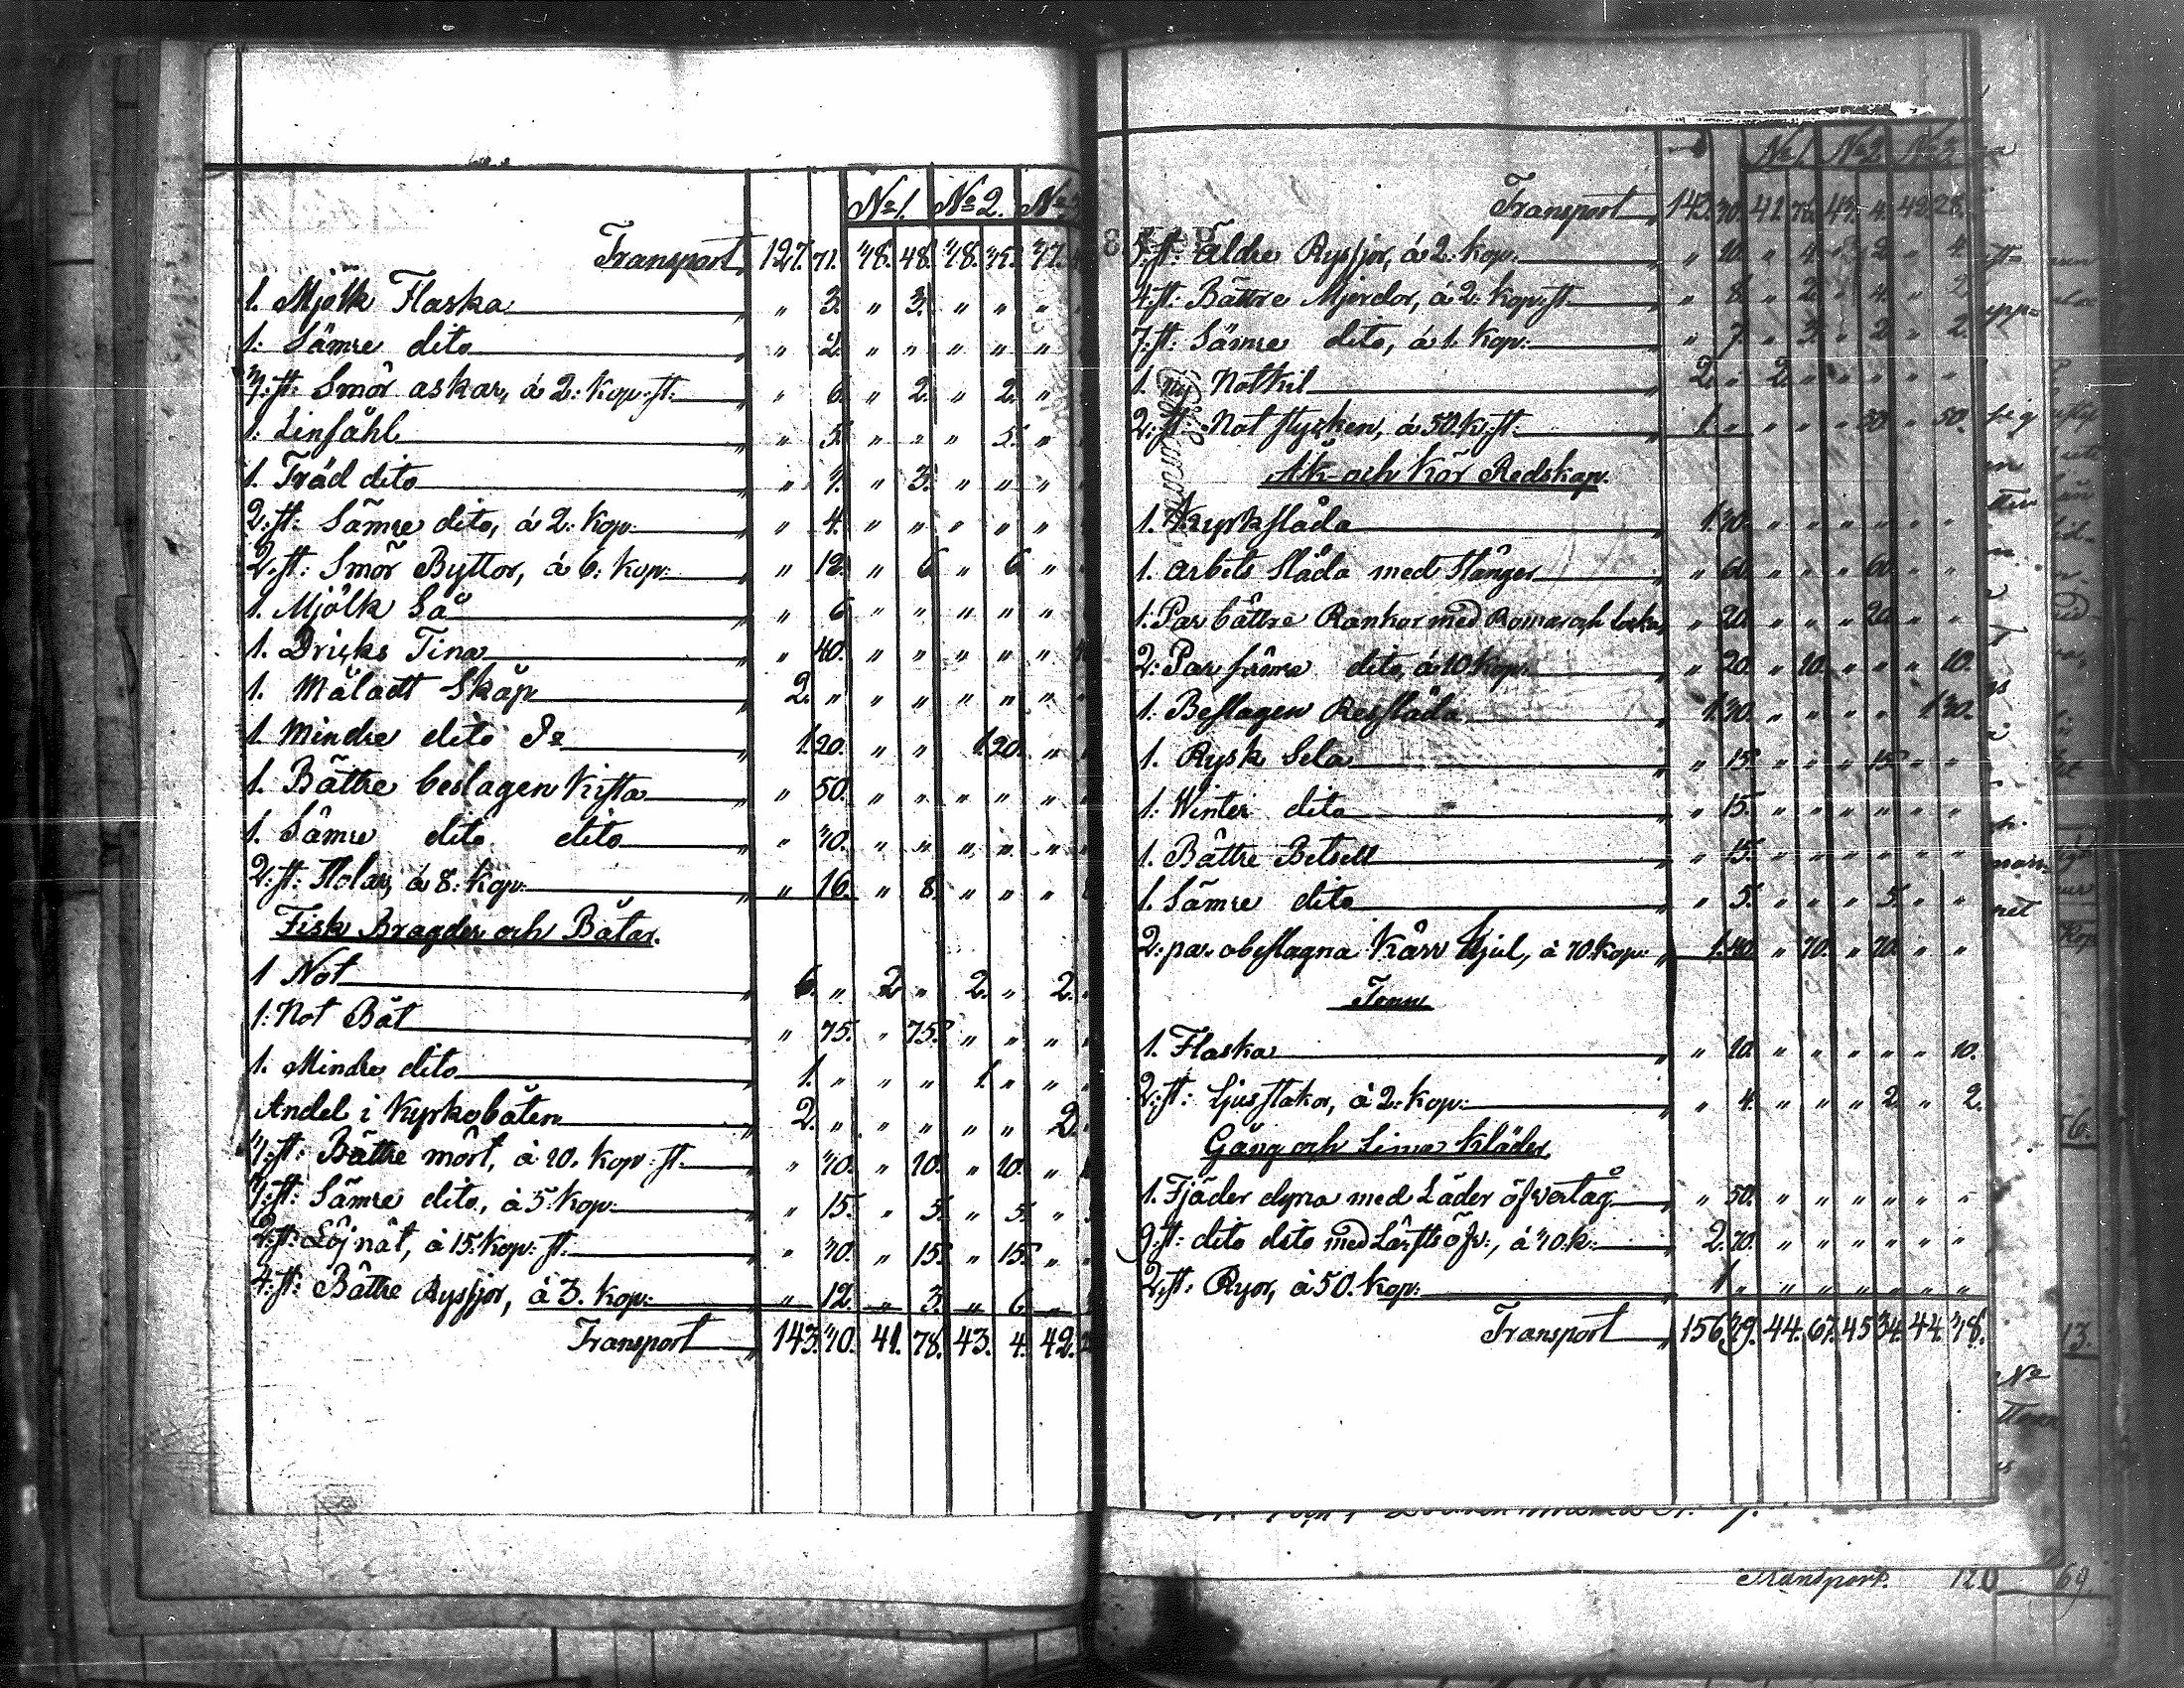 No 1. No 2. No 3
Transport 127. 71. 38. 48. 38. 35. 37.
1. Mjölk Flaska " 3. " 3. " " "
1. Sämre dito " 2. " " " " "
3: st: Smör askar, á 2: kop: st: " 6. " 2. " 2. "
1. Linsåhl " 5. " " " 5. "
1. Träd dito " 3. " 3. " " "
2: st: Sämre dito, á 2: kop: " 4. " " " " "
2: st: Smör Byttor, á 6: kop: " 12. " 6 " 6 "
1. Mjölk Så " 6 " " " " "
1. Dricks Tina " 40. " " " " "
1. Måladt Skåp 2. " " " " " "
1. Mindre dito Do 1. 20. " " 1. 20. "
1. Bättre beslagen Kista " 50. " " " " "
1. Sämre dito dito " 30. " " " " "
2: st: Stolar, á 8: kop: " 16. " 8. " " "
Fisk Bragder och Båtar.
1 Not 6. " 2 " 2. " 2.
1: Not Båt " 75. " 75. " " "
1. Mindre dito 1. " " " 1. " "
Andel i Kyrkobåten 2. " " " " " 2.
3: st: Bättre mört, á 10. kop: st: " 30. " 10. " 10. "
3: st: Sämre dito, á 5: kop: " 15. " 5. " 5. "
2: st: Löjnät, á 15: kop: st: " 30. " 15. " 15. "
4: st: Bättre Ryssjor, á 3. kop: " 12. " 3. " 6. "
Transport 143. 30. 41. 78. 43. 4. 42.
No 1. No 2. No 3
Transport 143. 30. 41. 78. 43. 4. 42. 28.
5: st: Äldre Ryssjor, á 2: kop: " 10. " 4. " 2 " 4.
4: st: Bättre Mjerdor, á 2: kop: st: " 8. " 2. " 4. " 2
7: st: Sämre dito, á 1. kop: " 7. " 3. " 2 " 2.
1. ny Notkil 2. " 2. " " " " "
2: st: Not stycken, á 50. k: st: 1. " " " " 50 " 50.
Åk- och Kör Redskap.
1. Kyrksläda 1. 30. " " " " " "
1. arbets släda med Stänger " 60. " " " 60. " "
1: Par bättre Rankor med Romar och " 20. " " " 20. " "
2: Par sämre dito, á 10 kop: " 20. " 10. " " " 10.
1: Beslagen Ressläda 1. 30. " " " " 1. 30.
1. Rysk Sela " 15. " " " 15. " "
1: Winter dito " 15. " " " " " "
1. Bättre Betsell " 15. " " " " " "
1. Sämre dito " 5. " " " 5. " "
2: par obeslagna Kärr Hjul, á 70. kop: 1. 40. " 70. " 70. " "
Tenn
1. Flaska " 10. " " " " " 10.
2: st: Ljusstakor, á 2: kop: " 4. " " " 2. " 2.
Gång och Linne Kläder
1. Fjäder dyna med Läder öfvertåg " 50. " " " " " "
9: st: dito dito med Lärfts öfv:, á 30. k: 2. 70. " " " " " "
2: st: Ryor, á 50. kop: 1 " " " " " " "
Transport 156. 29. 44. 67. 45 34. 44. 38.
Transport. 120 69.